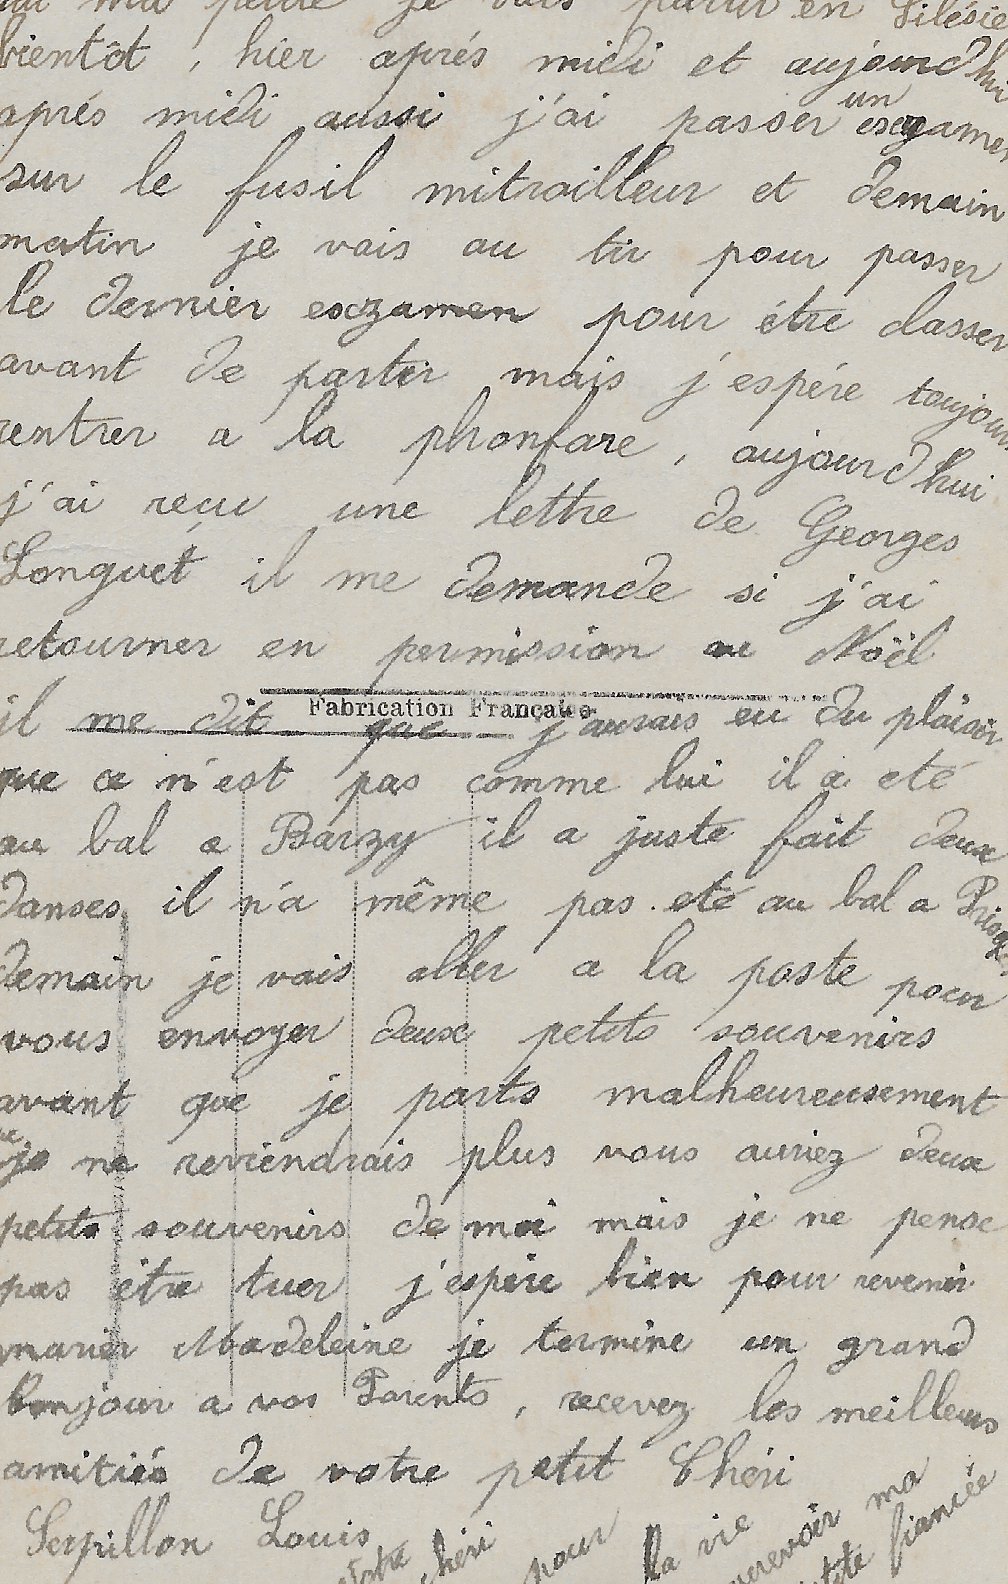 ma petite je vais partir en Silésie
bientôt, hier aprés midi et aujourd'hui
aprés midi aussi j'ai passer un exzamen
sur le fusil mitrailleur et demain
matin je vais au tir pour passer
le dernier exzamen pour étre classer
avant de partir mais j'espére toujours
rentrer a la phonfare, aujourd'hui
j'ai reçu une lettre de Georges
Longuet il me demande si j'ai
retourner en permission au Noël
Fabrication Française
il me dit que j'aurais eu du plaisir
que ce n'est pas comme lui il a eté
au bal a Barzy il a juste fait deux
danses il n'a même pas eté au bal a
demain je vais aller a la poste pour
vous envoyer deux petits souvenirs
avant que je parts malheureusement
je ne reviendrais plus vous auriez deux
petits souvenirs de moi mais je ne pense
pas être tuer j'espére bien pour revenir
marier Madeleine je termine un grand
bonjour a vos Parents, recevez les meilleurs
amitiés de votre petit Chéri
Serpillon Louis
Votre chéri pour la vie
verevoir ma
petite fiancée